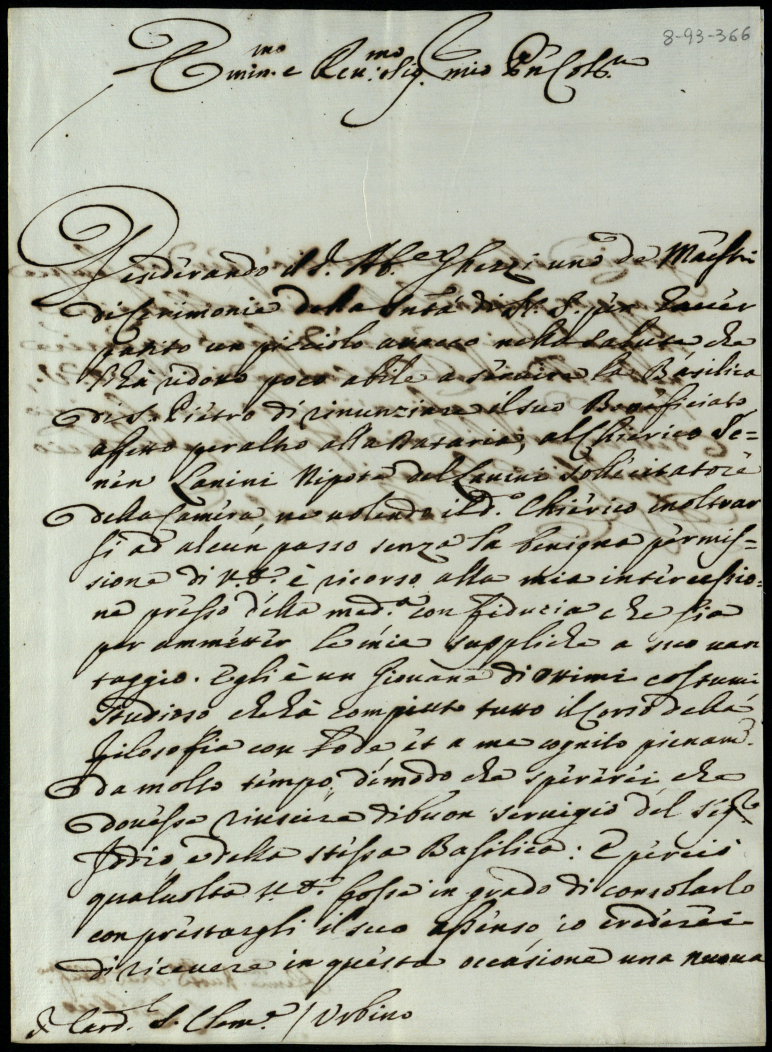 8-93-366
Emin.mo e Rev.mo Sig. mio P͞n Col.mo
Desiderando il S. Ab.e Ghezzi uno de Maestri
di Cerimonie della Sntà di N. S. per haver
patito un picciolo attacco nella salute che
l'hà reduto poco abile a servire la Basilica
di S. Pietro di rinunziare il suo Beneficiato
affetto peraltro alla Dataria, al Chierico Se=
nen Lanini Nipote del Lanini Sollicitatore
della Camera, ne volendo il d.o Chierico inoltrar
si ad alcun passo senza la benigna permis=
sione di V. E. è ricorso alla mia intercessio=
ne presso della med.a con fiducia che sia
per ammetter le mie suppliche a suo van
taggio. Egli è un Giovane di ottimi costumi
Studioso che hà compiuto tutto il Corso della
filosofia con lode et a me cognito pienam.e
da molto tempo, dimodo che sperarei che
dovesse riuscire di buon servigio del Sig.re
Iddio e della stessa Basilica: E perciò
qualvolta V. E. fosse in grado di consolarlo
con prestargli il suo assenso io crederei
di ricevere in questa occasione una nuova
S. Card.l S. Clem.e / Urbino